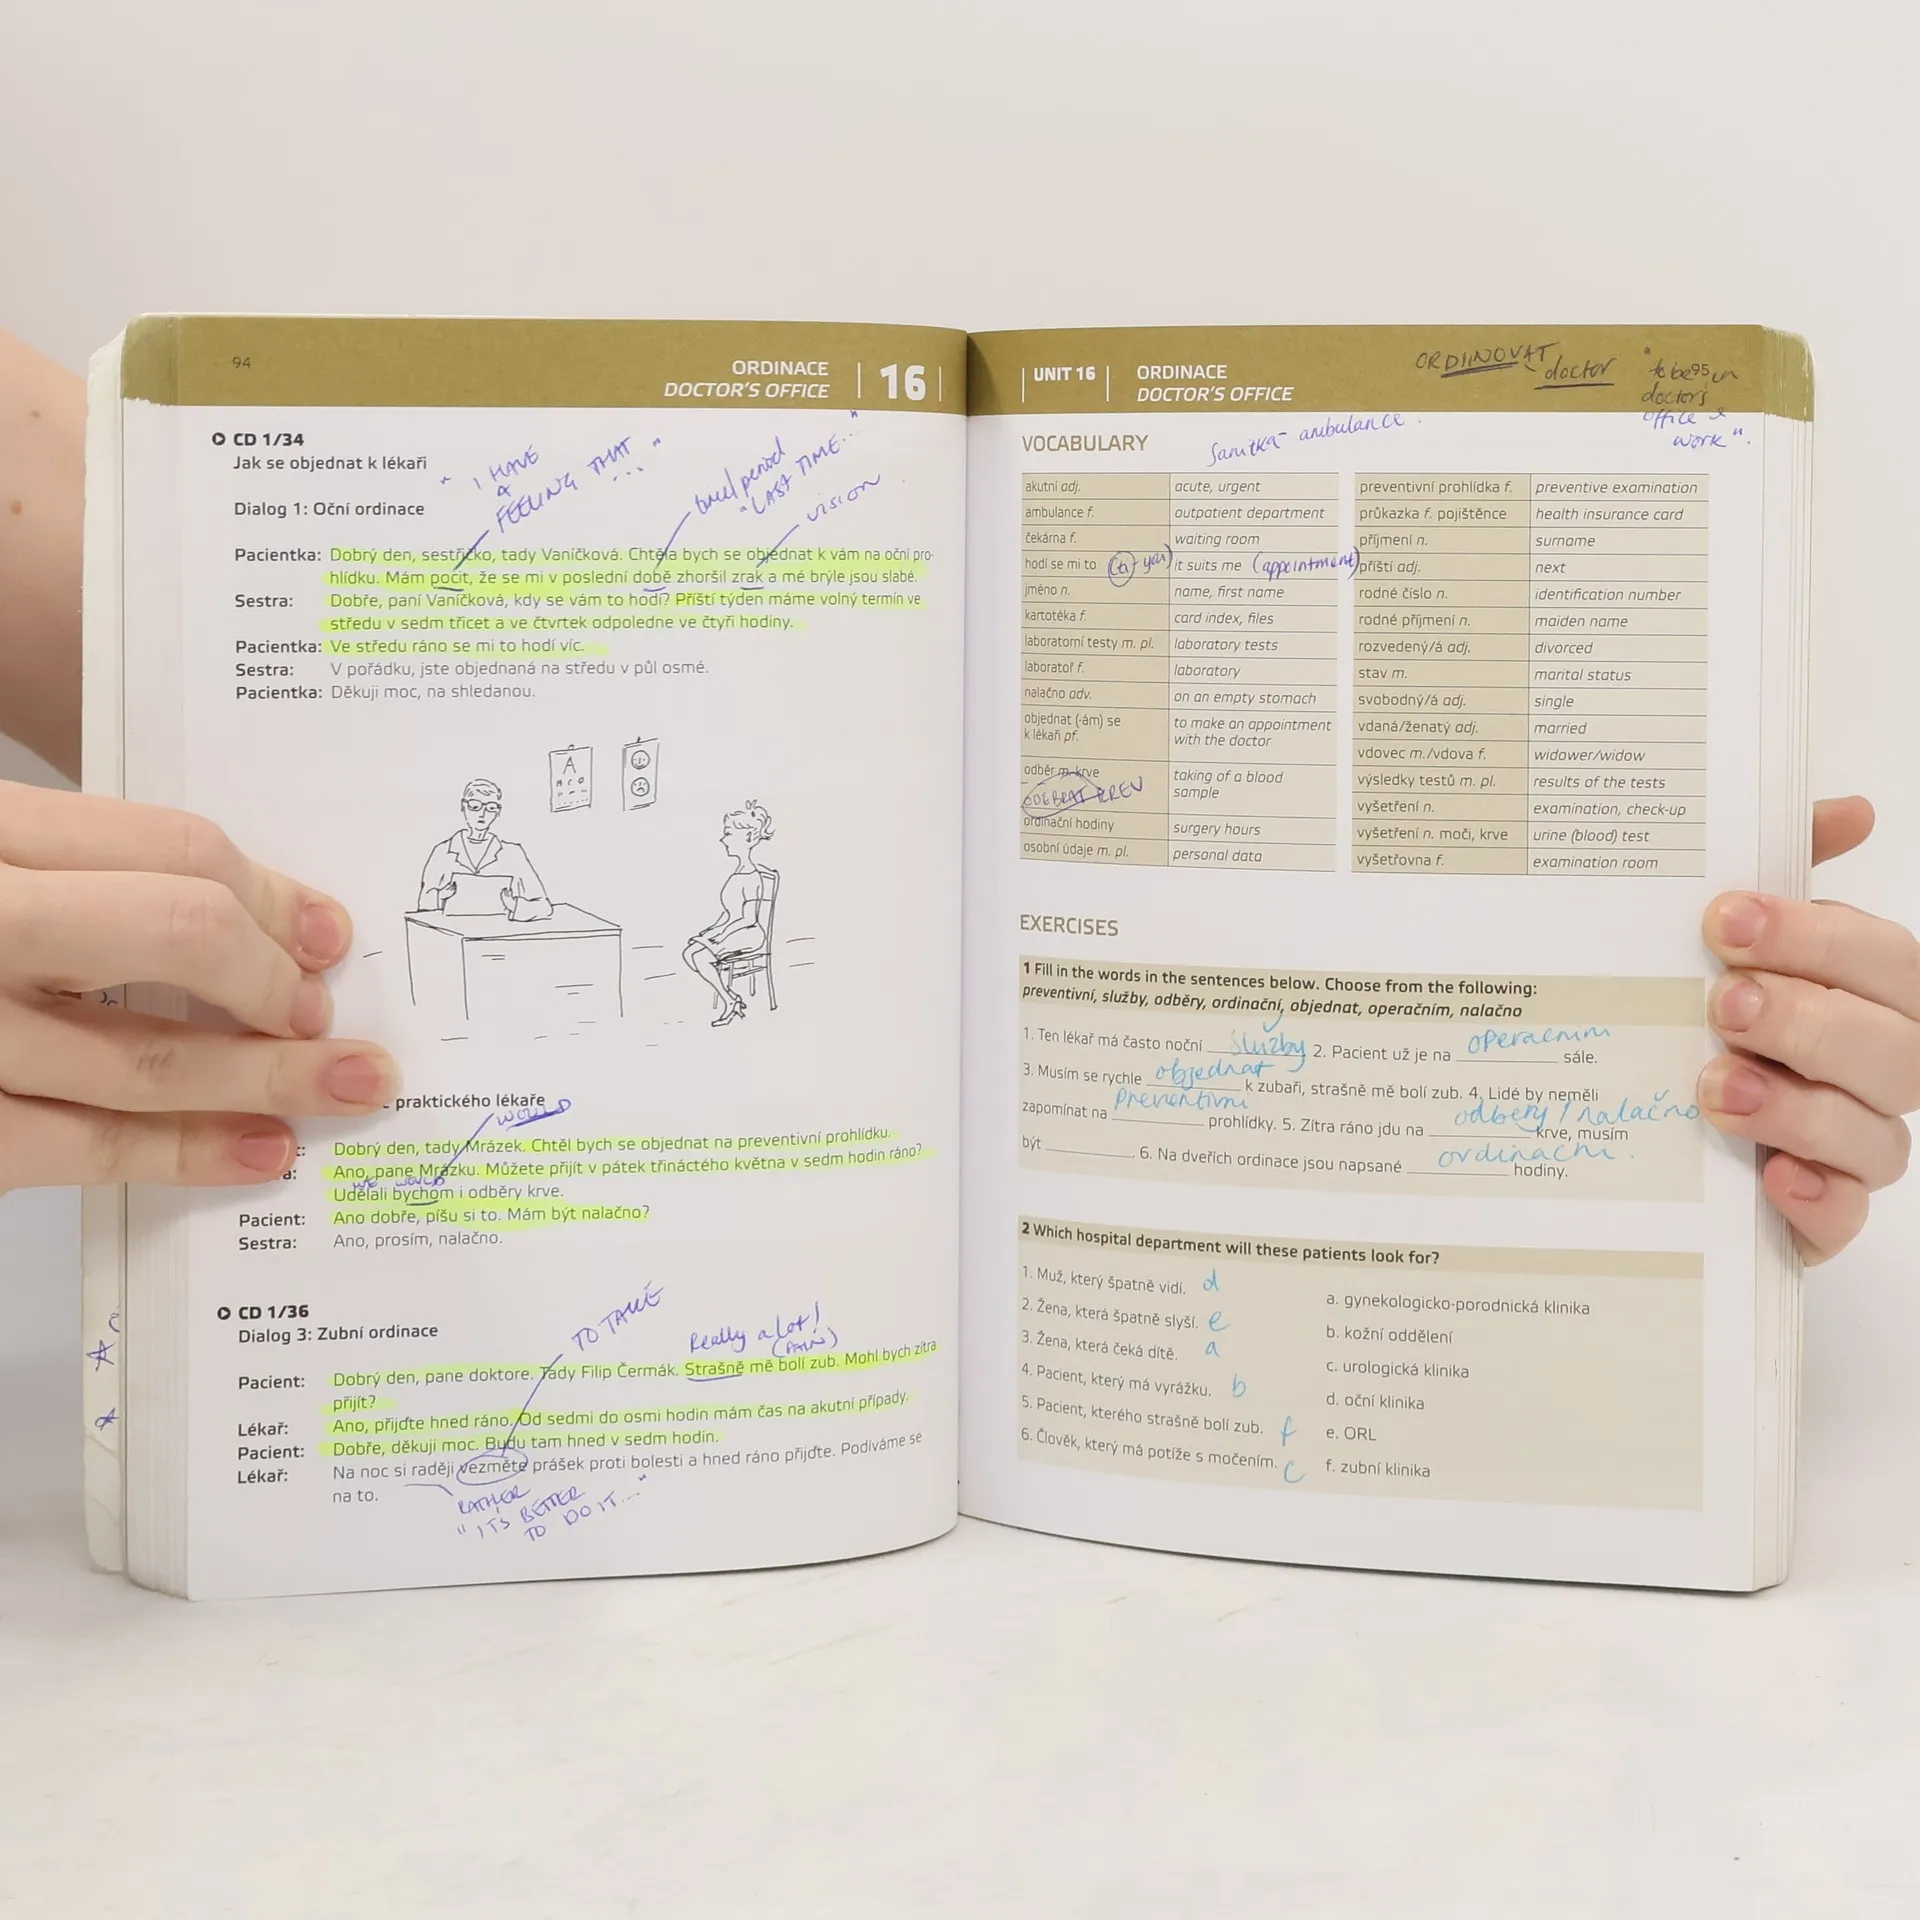 94
ORDINACE
DOCTOR'S OFFICE
16
CD 1/34
Jak se objednat k lékaři
" I HAVE
A
FEELING THAT "
...
period
"LAST TIME..."
vision
Dialog 1: Oční ordinace
Pacientka: Dobrý den, sestřičko, tady Vaníčková. Chtěla bych se objednat k vám na oční pro-
hlídku. Mám pocit, že se mi v poslední době zhoršil zrak a mé brýle jsou slabé.
Sestra: Dobře, paní Vaníčková, kdy se vám to hodí? Příští týden máme volný termín ve
středu v sedm třicet a ve čtvrtek odpoledne ve čtyři hodiny.
Pacientka: Ve středu ráno se mi to hodí víc.
Sestra: V pořádku, jste objednaná na středu v půl osmé.
Pacientka: Děkuji moc, na shledanou.
A
praktického lékaře
WOULD
Dobrý den, tady Mrázek. Chtěl bych se objednat na preventivní prohlídku.
Ano, pane Mrázku. Můžete přijít v pátek třináctého května v sedm hodin ráno?
WE WOULD
Udělali bychom i odběry krve.
Pacient: Ano dobře, píšu si to. Mám být nalačno?
Sestra: Ano, prosím, nalačno.
CD 1/36
Dialog 3: Zubní ordinace
TO TAKE
Really a lot!
(PAIN)
Pacient: Dobrý den, pane doktore. Tady Filip Čermák. Strašně mě bolí zub. Mohl bych zítra
přijít?
Lékař: Ano, přijďte hned ráno. Od sedmi do osmi hodin mám čas na akutní případy.
Pacient: Dobře, děkuji moc. Budu tam hned v sedm hodin.
Lékař: Na noc si raději vezměte prášek proti bolesti a hned ráno přijďte. Podíváme se
na to.
RATHER
" ITS BETTER
TO DO IT..."
UNIT 16
ORDINACE
DOCTOR'S OFFICE
ORDINOVAT
doctor
95
"to be in
doctor's
office &
work".
VOCABULARY
Sanitka - ambulance.
akutní adj. acute, urgent
ambulance f. outpatient department
čekárna f. waiting room
hodí se mi to (ti - you) it suits me (appointment)
jméno n. name, first name
kartotéka f. card index, files
laboratorní testy m. pl. laboratory tests
laboratoř f. laboratory
nalačno adv. on an empty stomach
objednat (-ám) se
k lékaři pf. to make an appointment
with the doctor
odběr m. krve taking of a blood
sample
ODEBRAT KREV
ordinační hodiny surgery hours
osobní údaje m. pl. personal data
preventivní prohlídka f. preventive examination
průkazka f. pojištěnce health insurance card
příjmení n. surname
příští adj. next
rodné číslo n. identification number
rodné příjmení n. maiden name
rozvedený/á adj. divorced
stav m. marital status
svobodný/á adj. single
vdaná/ženatý adj. married
vdovec m./vdova f. widower/widow
výsledky testů m. pl. results of the tests
vyšetření n. examination, check-up
vyšetření n. moči, krve urine (blood) test
vyšetřovna f. examination room
EXERCISES
1 Fill in the words in the sentences below. Choose from the following:
preventivní, služby, odběry, ordinační, objednat, operačním, nalačno
1. Ten lékař má často noční služby 2. Pacient už je na operacnim sále.
3. Musím se rychle objednat k zubaři, strašně mě bolí zub. 4. Lidé by neměli
zapomínat na Preventivni prohlídky. 5. Zítra ráno jdu na odbery / nalačno krve, musím
být ______. 6. Na dveřích ordinace jsou napsané ordinacni. hodiny.
2 Which hospital department will these patients look for?
1. Muž, který špatně vidí. d
2. Žena, která špatně slyší. e
3. Žena, která čeká dítě. a
4. Pacient, který má vyrážku. b
5. Pacient, kterého strašně bolí zub. f
6. Člověk, který má potíže s močením. c
a. gynekologicko-porodnická klinika
b. kožní oddělení
c. urologická klinika
d. oční klinika
e. ORL
f. zubní klinika